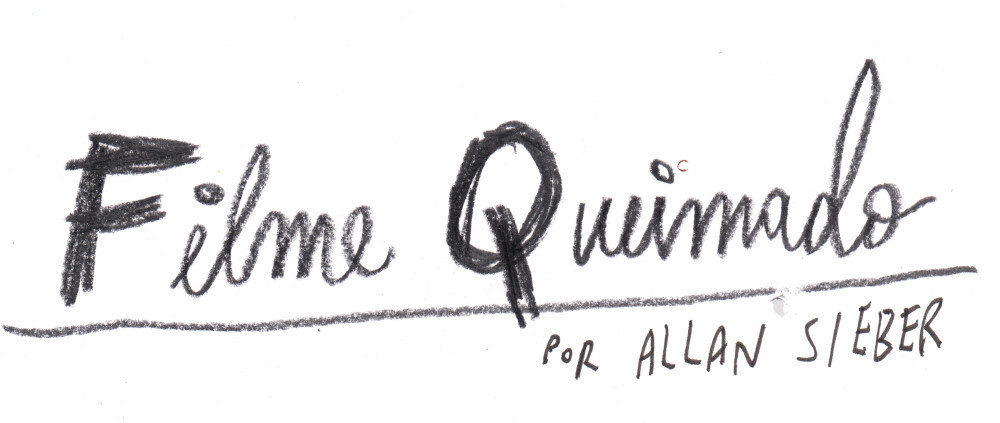 Filme Queimado
POR ALLAN SIEBER